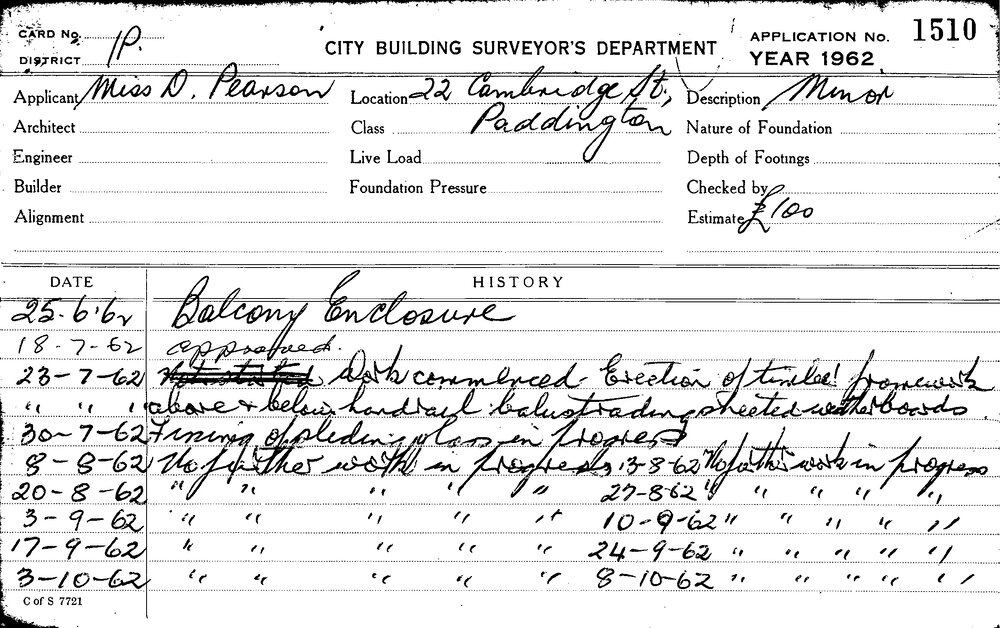 CARD No.
DISTRICT 1P.
CITY BUILDING SURVEYOR'S DEPARTMENT
APPLICATION No. 1510
YEAR 1962
Applicant Miss D. Pearson Location 22 Cambridge St., Description Minor
Architect Class Paddington Nature of Foundation
Engineer Live Load Depth of Footings
Builder Foundation Pressure Checked by
Alignment Estimate £100
DATE HISTORY
25.6.62 Balcony Enclosure
18-7-62 approved.
23-7-62 Not started Work commenced. Erection of timber framework
" " " above & below handrail balustrading sheeted weatherboards
30-7-62 Fixing of sliding glass in progress
8-8-62 No further work in progress 13-8-62 No further work in progress
20-8-62 " " " " " 27-8-62 " " " " "
3-9-62 " " " " " 10-9-62 " " " " "
17-9-62 " " " " " 24-9-62 " " " " "
3-10-62 " " " " " 8-10-62 " " " " "
C of S 7721